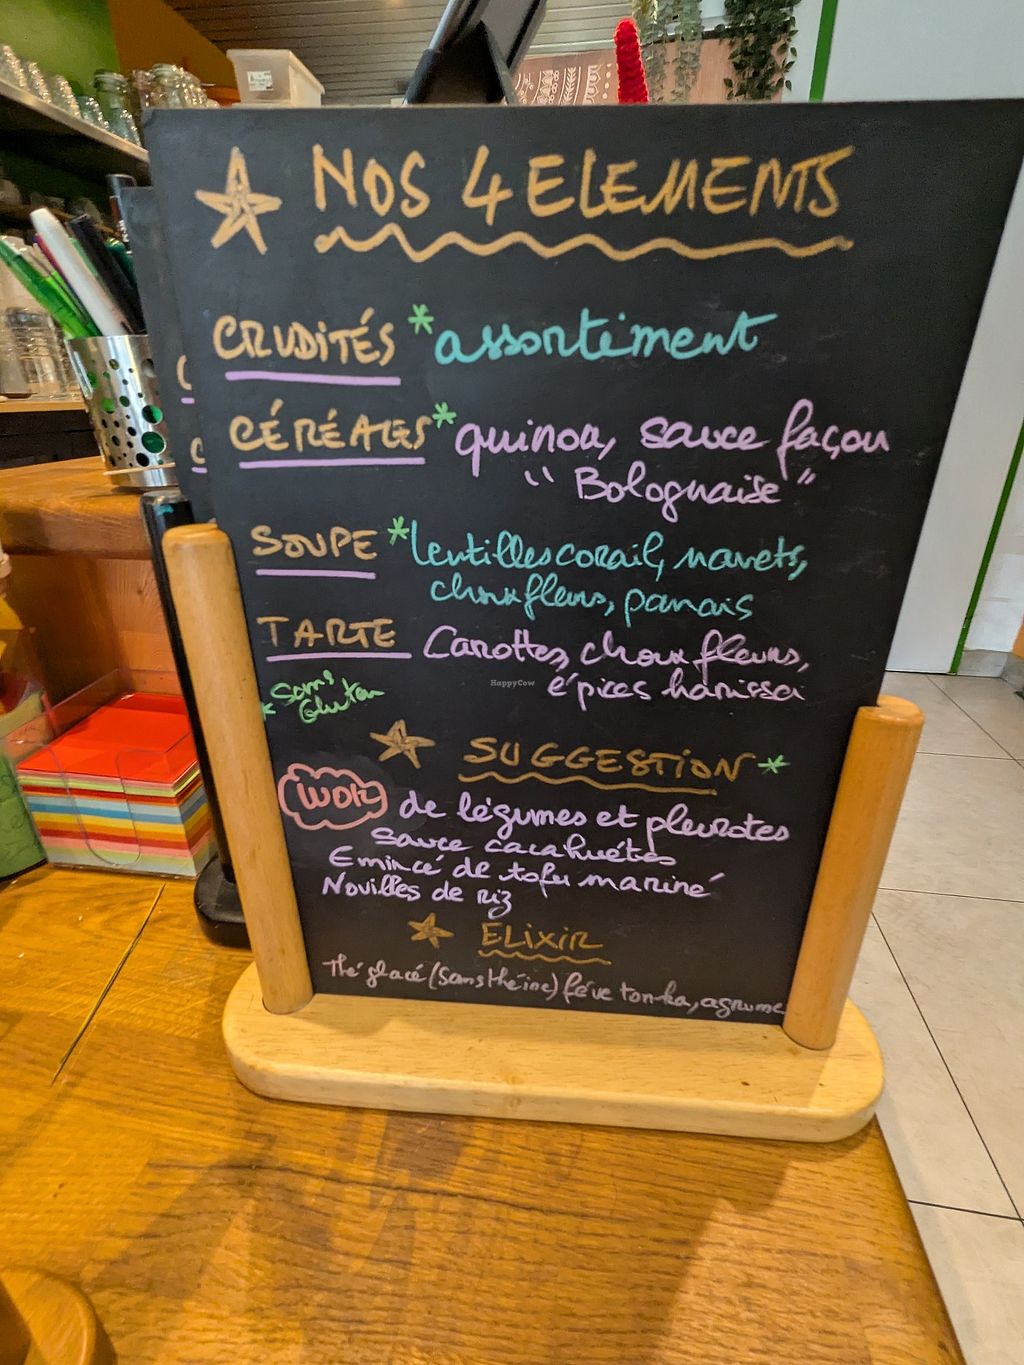 NOS 4 ELEMENTS
CRUDITÉS *assortiment
CÉRÉALES* quinoa, sauce façon
"Bolognaise"
SOUPE *lentilles corail, navets,
choux fleurs, panais
TARTE Carottes, choux fleurs,
épices harissa
* Sans
Gluten
HappyCow
SUGGESTION *
WOK de légumes et pleurotes
sauce cacahuétes
Emincé de tofu mariné
Nouilles de riz
ELIXIR
Thé glacé (sans théine) fève tonka, agrume